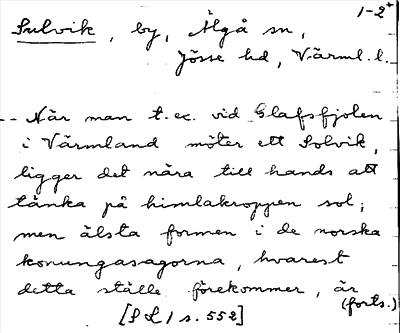 1-2+
Sulvik, by, Älgå sn,
Jösse hd, Värml. l.
-- När man t. ex. vid Glafsfjolen
i Värmland möter ett Solvik,
ligger det nära till hands att
tänka på himlakroppen sol;
men älsta formen i de norska
konungasagorna, hvarest
detta ställe förekommer, är
(forts.)
[SL 1 s. 552]